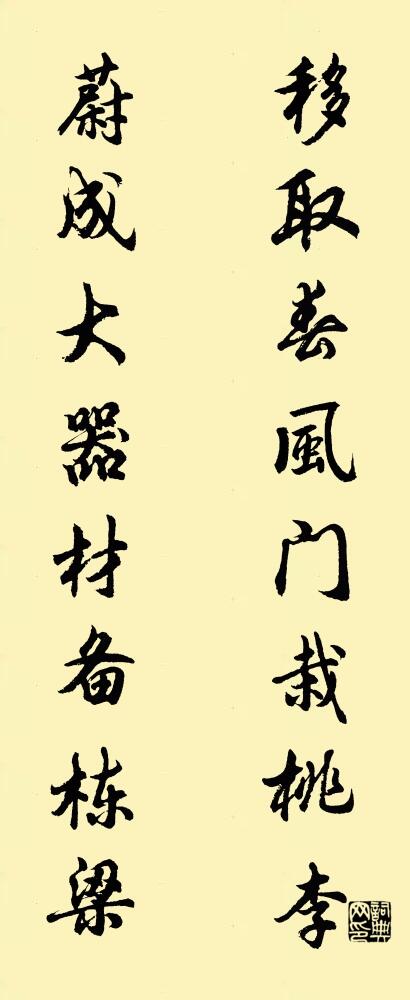 移取春風门栽桃李
蔚成大器材备栋梁
詞典网印